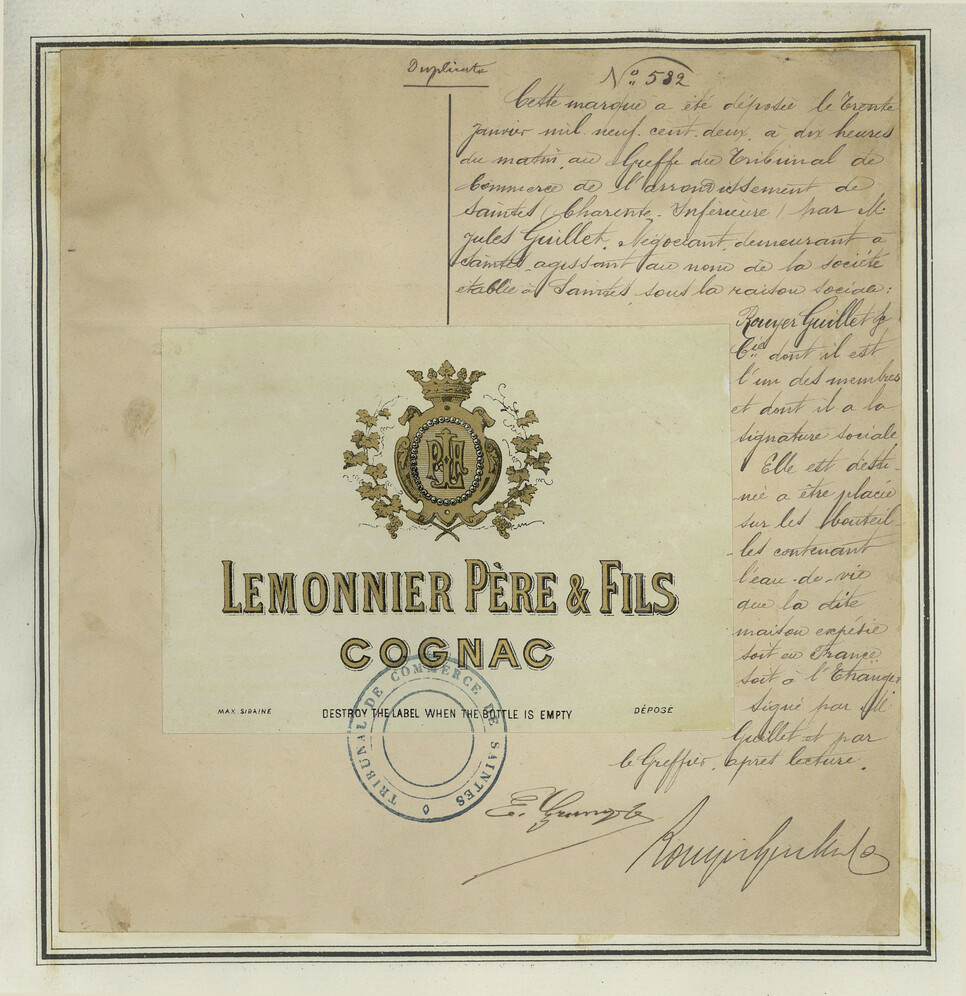 Duplicata
N° 532
Cette marque a été déposée le trente
Janvier mil neuf cent deux, à dix heures
du matin, au Greffe du Tribunal de
Commerce de l'arrondissement de
Saintes (Charente-Inférieure) par M.
Jules Guillet, Négociant, demeurant à
Saintes, agissant au nom de la société
établie à Saintes, sous la raison sociale:
Rouyer Guillet &
Cie dont il est
l'un des membres
et dont il a la
signature sociale.
Elle est desti-
née a être placée
sur les bouteil-
les contenant
l'eau-de-vie
que la dite
maison expédie
soit en France
soit à l'Etranger
Signé par M.
Guillet et par
le Greffier, après lecture.
LEMONNIER PÈRE & FILS
COGNAC
MAX SIDAINE
DESTROY THE LABEL WHEN THE BOTTLE IS EMPTY
DÉPOSÉ
TRIBUNAL DE COMMERCE DE SAINTES
Rouyer Guillet & Co